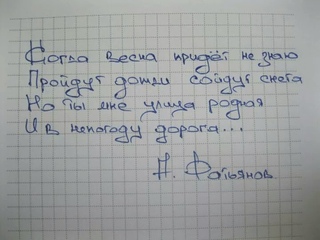 Когда весна придёт не знаю
Пройдут дожди сойдут снега
Но ты мне улица родная
И в непогоду дорога...
А. Фатьянов